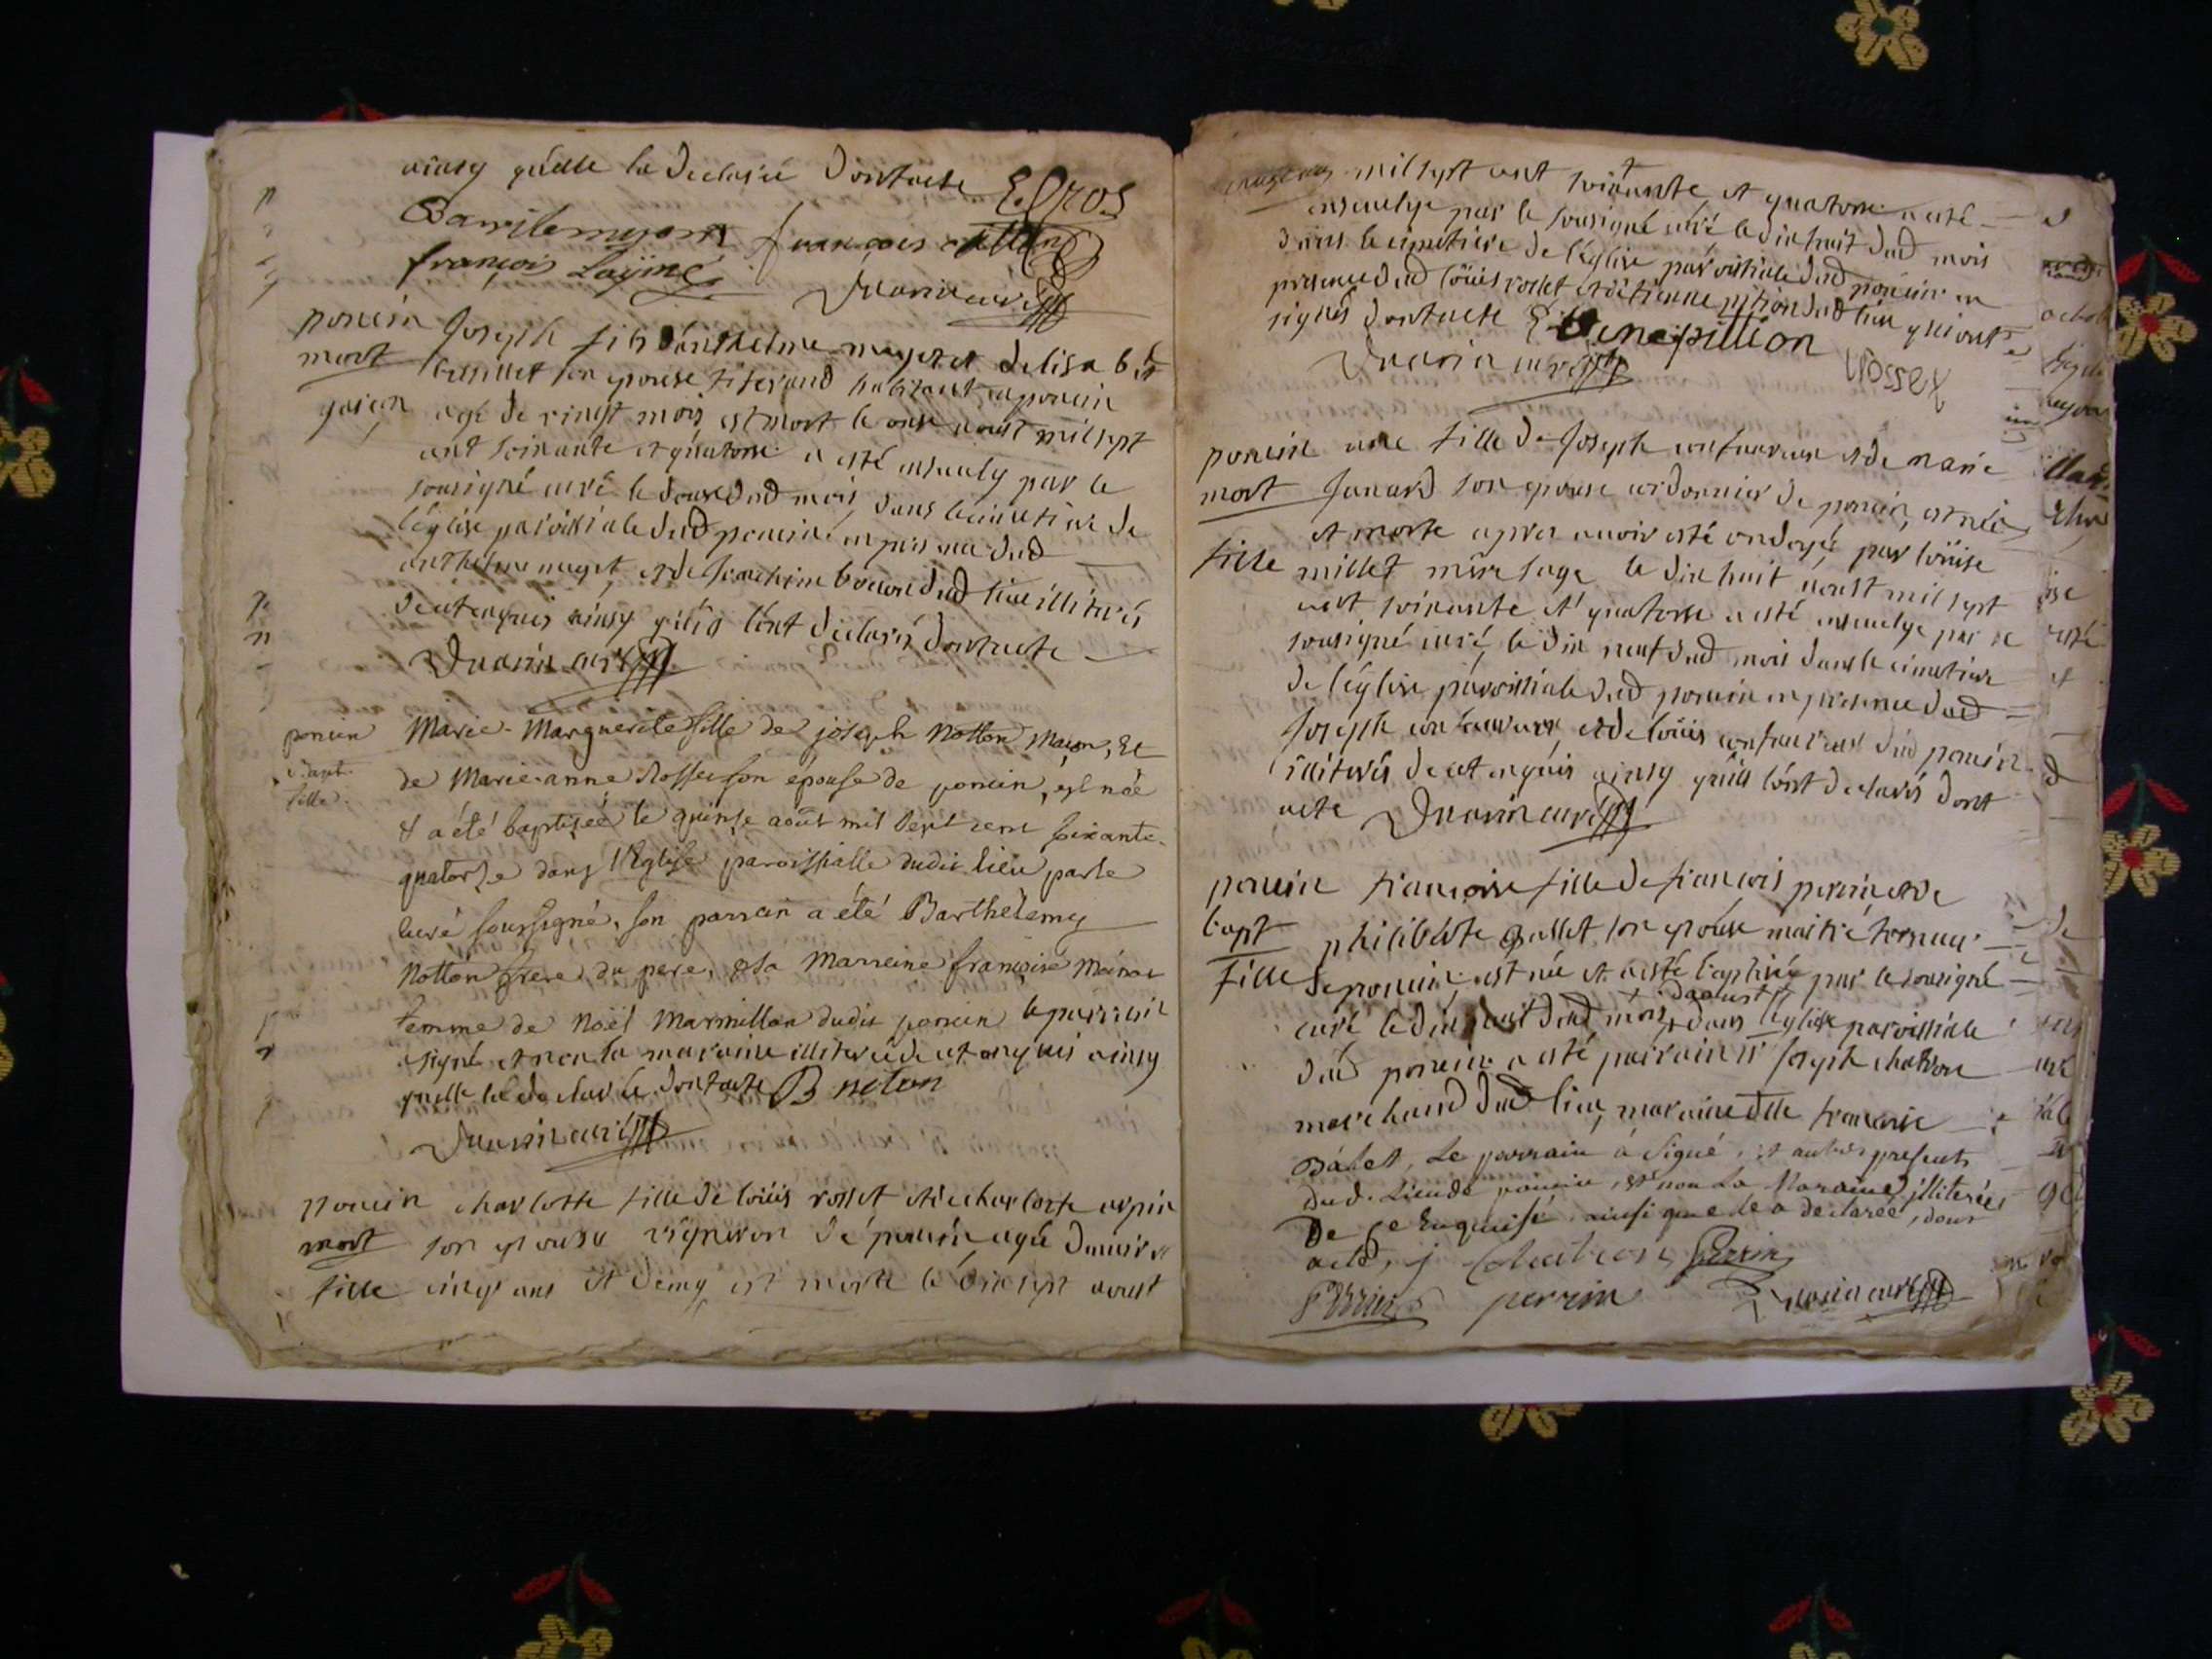 ainsy quelle la declaré dontacte E. gros
Barrilemyon françois
françois Layme
Duarin curé
poncin Joseph fils danthelme mugnet delisabt
mort son epouse tiserand habitant a poncin
garçon agé de vingt mois est mort le onse aoust mil sept
cent soixante et quatorse a esté ensevely par le
sousigné curé le douse dud mois dans le cimetiere de
léglise paroissiale dud poncin en presence dud
anthelme mugnet et de dud lieu illiterés
de ce enquis ainsy quils lont declarés dontacte
Duarin curé
poncin Marie-Marguerite fille de joseph Notton Maçon, Et
bapt. de Marie-anne Rosset son épouse de poncin, est née
fille & a été baptisée le quinse août mil sept cent soixante-
quatorse dans l'Eglise paroissialle dudit lieu par le
curé soussigné, son parrain a été Barthelemy
Notton frere du pere, & sa Marreine françoise
femme de Noël Marmillon dudit poncin le parrain
a signé et non la maraine illiterée de ce enquis ainsy
quelle la declaré dontacte B noton
Duarin curé
poncin charlotte fille de loüis rosset et de charlotte arpin
mort son epouse vigneron de poncin agée denviron
fille cinq ans et demy est morte le dix sept aoust
mil sept cent soixante et quatorse a esté
ensevelye par le sousigné curé le dix huit dud mois
dans le cimetiere de léglise paroissiale dud poncin en
presence dud loüis rosset et détienne pition dud lieu qui ont
signés dontacte Etiene pition
Duarin curé Rosset
poncin une fille de Joseph confavreux et de marie
mort Junard son epouse cordonnier de poncin, est née
et morte apres avoir esté ondoyée par loüise
fille millet mere sage le dix huit aoust mil sept
cent soixante et quatorse a esté ensevelye par le
sousigné curé le dix neuf dud mois dans le cimetiere
de léglise paroissiale dud poncin en presence dud
Joseph confavreux et de loüis confavreux dud poncin
illiterés de ce enquis ainsy quils lont declarés dont
acte Duarin curé
poncin francoise fille de francois perrin et de
bapt philiberte Ballet son epouse maitre
fille de poncin est née et a esté baptisée par le sousigné
curé le dix huit dud mois + daoust dans léglise paroissiale
dud poncin a esté parrain sr Joseph chatron
marchand dud lieu, maraine dlle francoise
Balet, Le parrain à signé, et autres presents
dud. Lieu de poncin, et non La Maraine illiterée
De ce Enquise ainsi que le a declarée, dont
acte, j Chatron Perrin
Perrin perrin Duarin curé